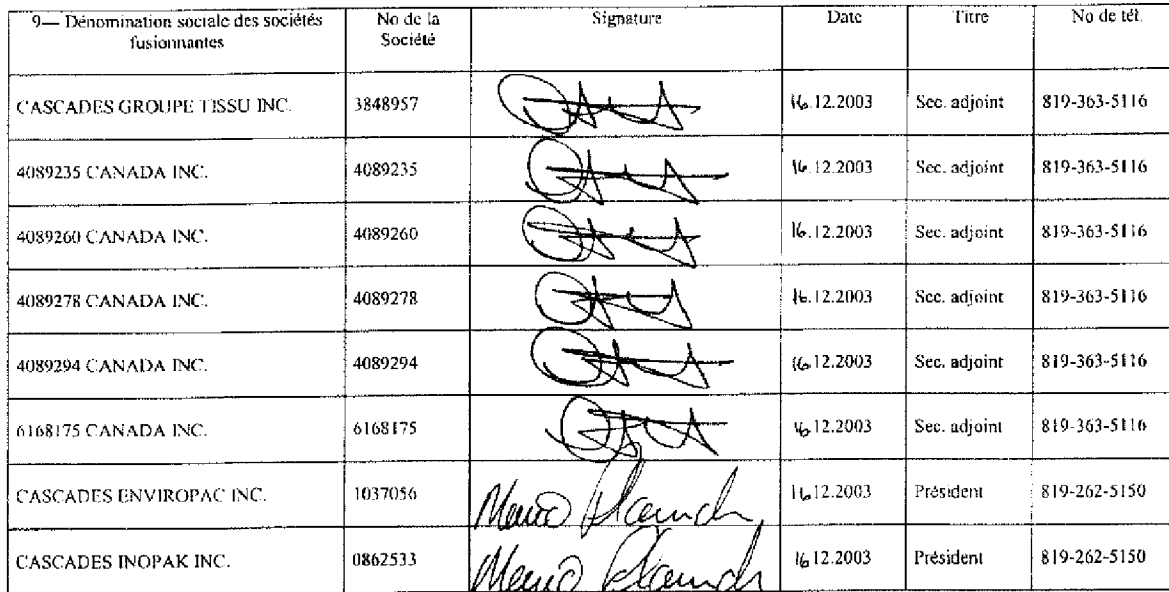 9— Dénomination sociale des sociétés fusionnantes No de la Société Signature Date Titre No de tél.
CASCADES GROUPE TISSU INC. 3848957 16.12.2003 Sec. adjoint 819-363-5116
4089235 CANADA INC. 4089235 16.12.2003 Sec. adjoint 819-363-5116
4089260 CANADA INC. 4089260 16.12.2003 Sec. adjoint 819-363-5116
4089278 CANADA INC. 4089278 16.12.2003 Sec. adjoint 819-363-5116
4089294 CANADA INC. 4089294 16.12.2003 Sec. adjoint 819-363-5116
6168175 CANADA INC. 6168175 16.12.2003 Sec. adjoint 819-363-5116
CASCADES ENVIROPAC INC. 1037056 16.12.2003 Président 819-262-5150
CASCADES INOPAK INC. 0862533 16.12.2003 Président 819-262-5150